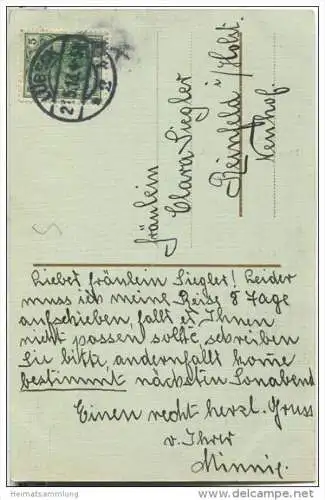 5
LÜBECK
Fräulein
Clara Siegler
Reinfeld i/Holst.
Neuhof.
Liebes Fräulein Siegler! Leider
muss ich meine Reise 8 Tage
aufschieben, fallt es Ihnen
nicht passen sollte, schreiben
Sie bitte, andernfallt kome
bestimmt nächsten Sonabend
Einen recht herzl. Gruss
v. Ihrer
Minnie.
© Heimatsammlung
www.ansichtskarten-center.de